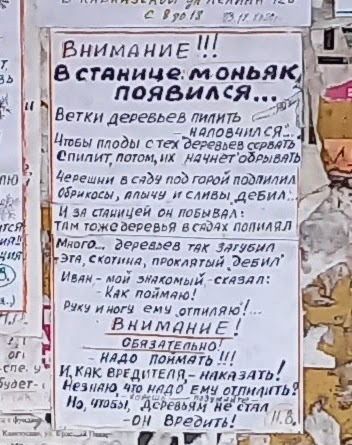 С 8 до 18
Внимание!!!
В станице маньяк
появился...
Ветки деревьев пилить
- наловчился...
Чтобы плоды с тех деревьев сорвать
Спилит, потом, их начнет обрывать
Черешни в саду под горой подпилил
Обрикосы, алычу и сливы, дебил...
И за станицей он побывал:
Там тоже деревья в садах попилял
Много... деревьев так загубил
- Эта, скотина, проклятый "дебил"
Иван - мой знакомый - сказал:
- Как поймаю!
Руку и ногу ему отпиляю!...
Внимание!
Обязательно!
- Надо поймать!!!
И, как вредителя - наказать!
Незнаю, что надо ему отпилить?
Но, чтобы, деревьям не стал
- он вредить!
11.8.